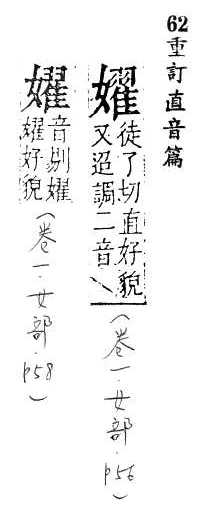 62重訂直音篇
嬥
徒了切直好貌
又迢調二音
(卷一.女部.p56)
嬥
音剔嬥
嬥好貌
(卷一.女部.p58)